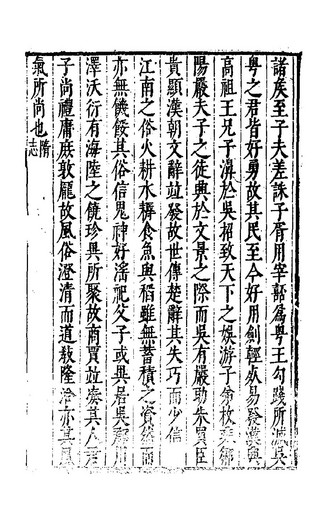 諸矦至子夫差誅子胥用宰嚭爲粤王句踐所滅吳
粤之君皆好勇故其民至今好用劍輕死易發漢興
高祖王兄子濞於吳招致天下之娱游子弟枚乗鄒
陽嚴夫子之徒興於文景之際而吳有嚴助朱買臣
貴顯漢朝文辭竝發故世傳楚辭其失巧而少信
江南之俗火耕水耨食魚與稻雖無蓄積之資然而
亦無饑餒其俗信鬼神好滛祀父子或異居吳
澤沃衍有海陸之饒珍異所聚故商賈竝凑其人君
子尚禮庸庶敦龎故風俗澄清而道教隆洽亦其風
氣所尚也隋志